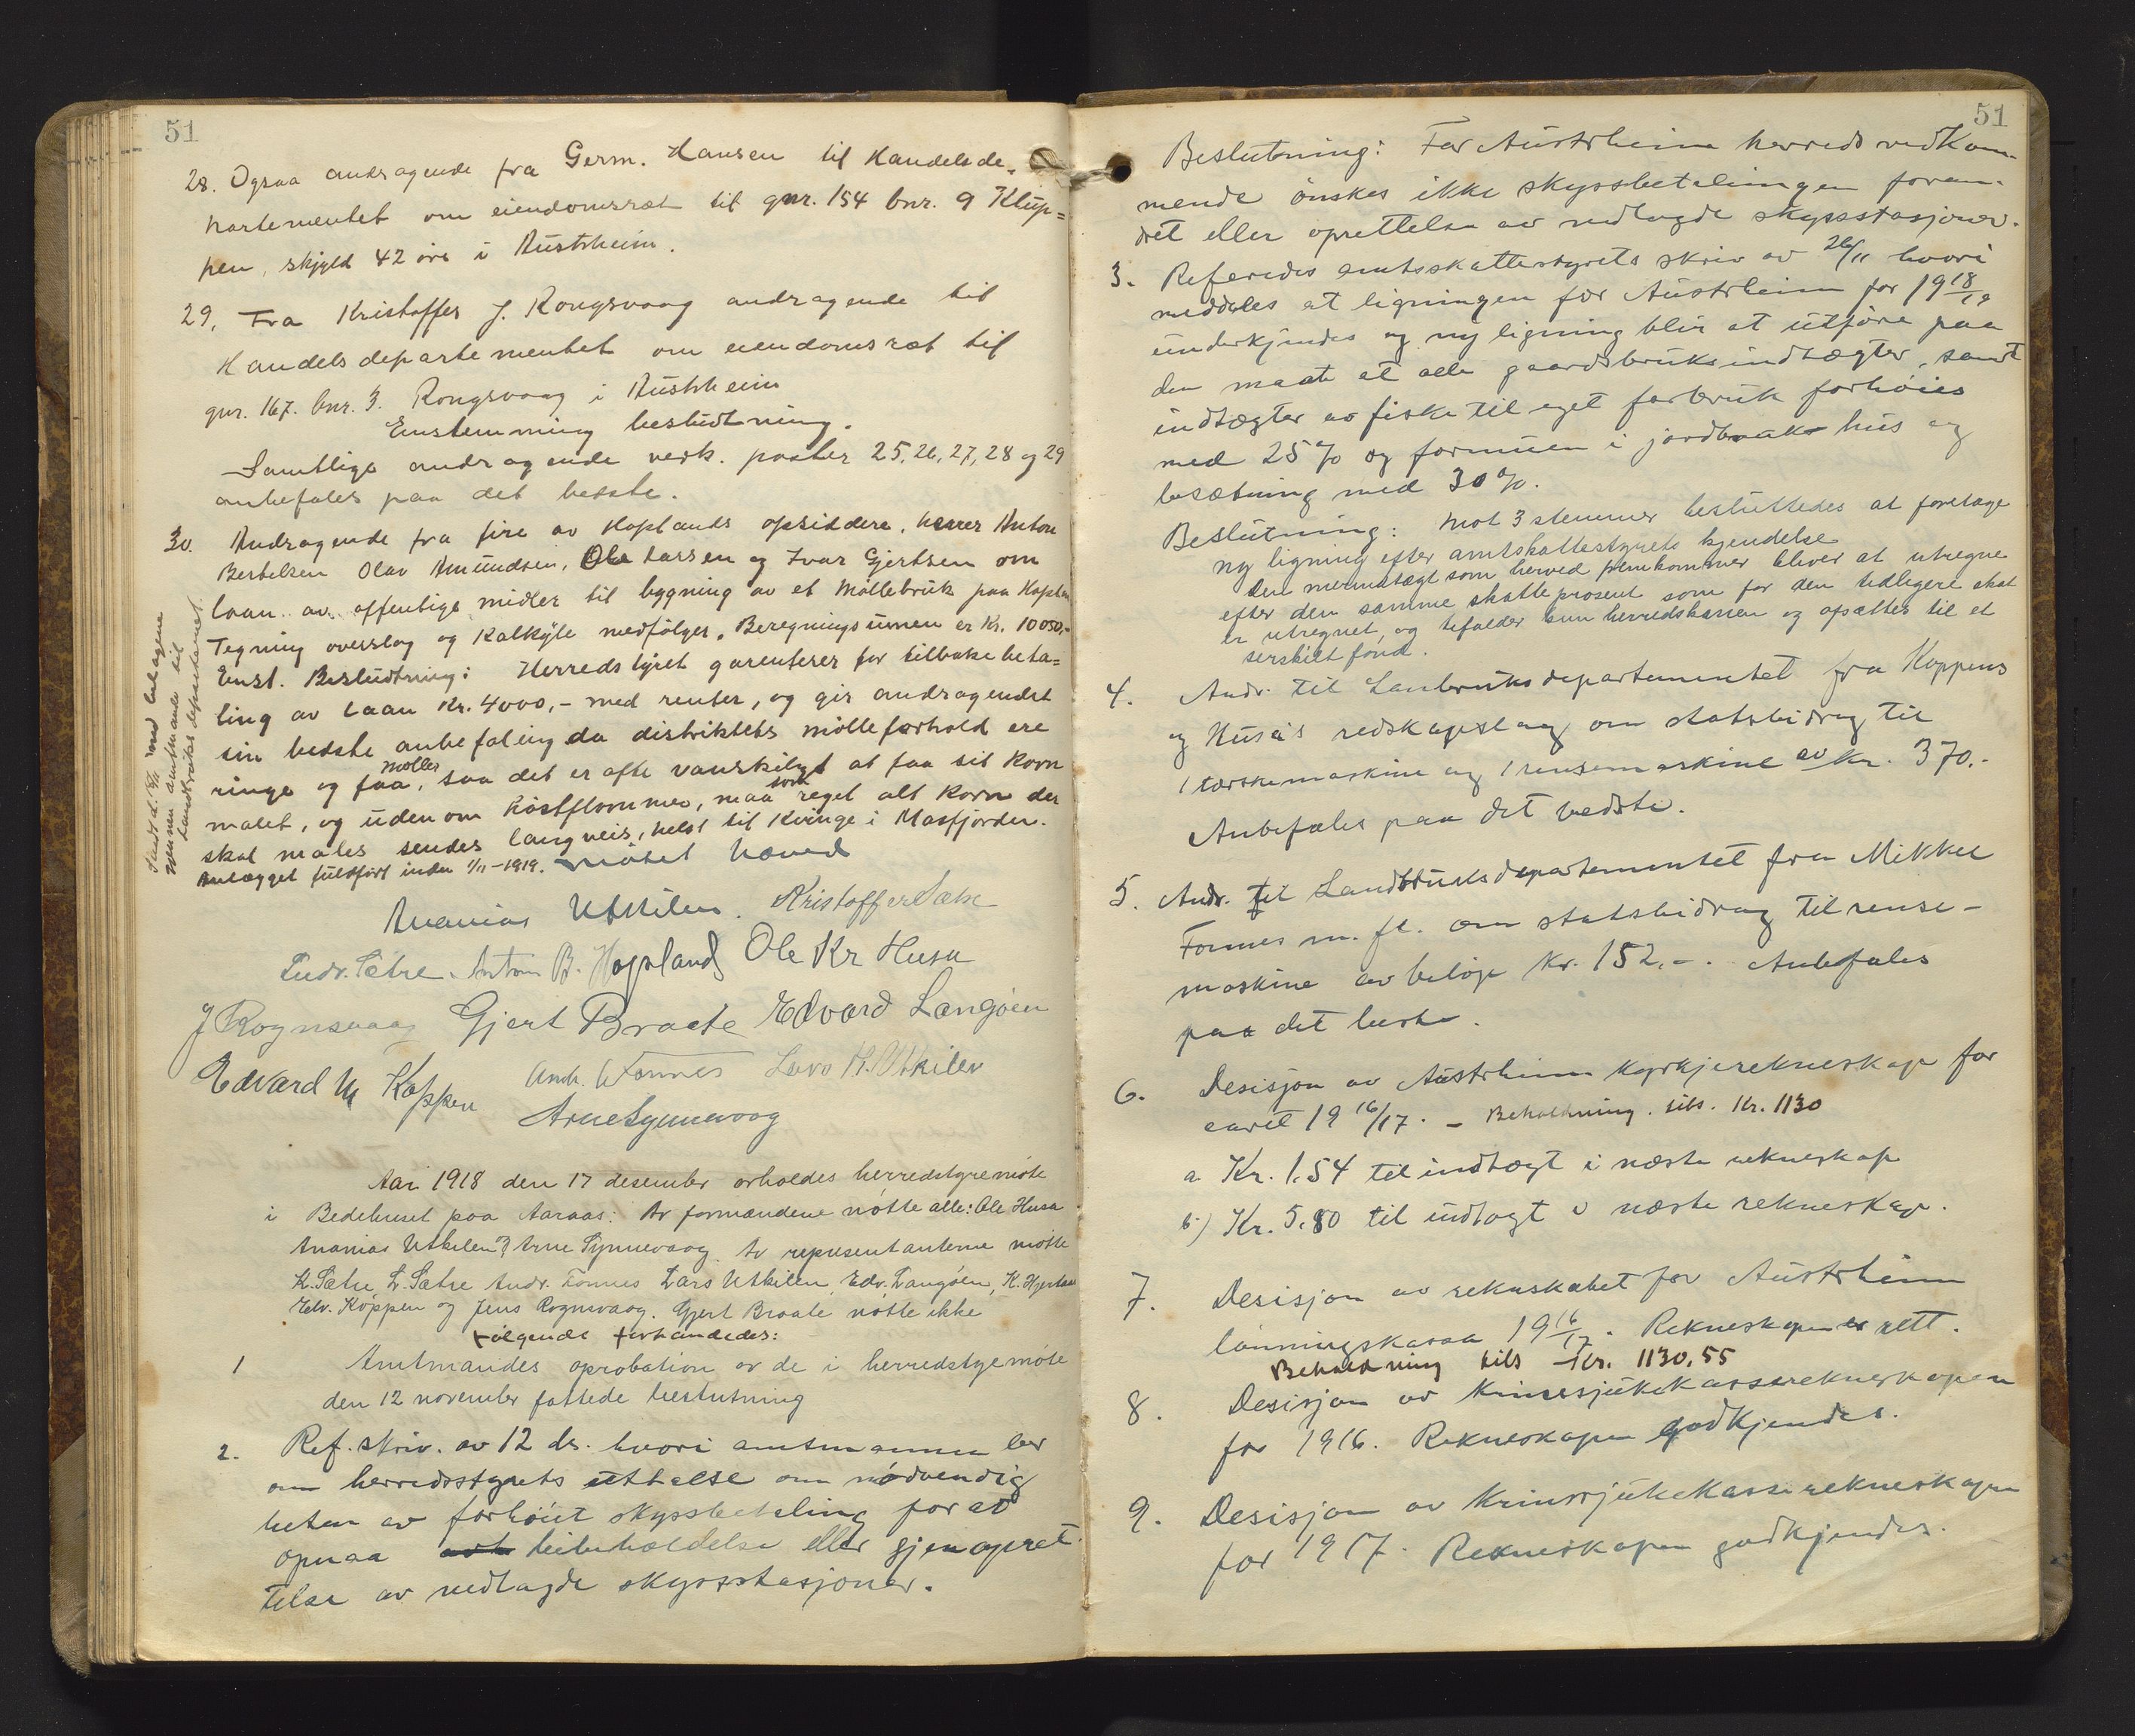 51
28. Ogsaa andragende fra Germ. Hansen til Handelsde-
partementet om eiendomsræt til gnr. 154 bnr. 9 Klup=
pen, skyld 42 øre i Austrheim.
29. Fra Kristoffer J. Rongsvaag andragende til
Handelsdepartementet om eiendomsræt til
gnr. 167. bnr. 3. Rongsvaag i Austrheim
Enstemming beslutning.
Samtlige andragende vedk. poster 25, 26, 27, 28 og 29
anbefales paa det bedste.
30. Andragende fra fire av Hoplands opsiddere, herrer Anton
Bertelsen Olav Amundsen, Ole Larssen og Ivar Gjertsen om
laan av offentlige midler til bygning av et møllebruk paa Hopland
Tegning overslag og Kalkyle medfølger. Beregningssumen er Kr. 10050,-
Enst. Beslutning: Herredstyret garenterer for tilbakebeta=
ling av laan Kr. 4000,- med renter, og gir andragendet
sin bedste anbefaling da distriktets mølleforhold ere
ringe og faa møller, saa det er ofte vanskeligt at faa sit Korn
malet, og uden om høstflommer, maa som regel alt Korn der
skal males sendes langveis, helst til Kvinge i Masfjorden.
Anlægget fuldført inden 1/11-1919. Møtet hæved
Ananias Utkilen. Kristoffer Sætre
Ludv. Sætre. Anton B. Hopland Ole Kr Husa
J Rognsvaag Gjert Braate Edvard Langøen
Edvard M Køppen Andr. Fonnes Lars K. Utkilen
Arne Synnevaag
Aar 1918 den 17 desember avholdes herredstyremøte
i Bedehuset paa Aaraas: Av formændene møtte alle: Ole Husa
Ananias Utkilen & Arne Synnevaag. Av representanterne møtte
K. Sætre, L. Sætre Andr. Fonnes Lars Utkilen, Edv. Langøen, K. Hjertaas
Edv. Køppen og Jens Rognsvaag. Gjert Braate møtte ikke
Følgende forhandledes:
1 Amtmandes aprobation av de i herredstyemøte
den 12 november fattede beslutning
2. Ref. skriv. av 12 ds. hvori amtmannen ber
om herredsstyrets uttalelse om nødvendig
heten av forhøiet skyssbetaling for at
opnaa beibeholdelse eller gjenopret
telse av nedlagde skysstasjoner.
51
Beslutning: For Austrheim herreds vedkom-
mende ønskes ikke skyssbetalingen foran-
dret eller oprettelse av nedlagde skyssstasjoner.
3. Referedes amtsskattestyrets skriv av 26/11 hvori
meddeles at ligningen for Austrheim for 1918/19
underkjendes og ny ligning blir at utføre paa
den maate at alle gaardsbruksindtægter, samt
indtægter av fiske til eget forbruk forhøies
med 25% og formuen i jordbruk hus og
besætning med 30%.
Beslutning: Mot 3 stemmer besluttedes at foretage
ny ligning efter amtskattestyrets kjendelse
Den merindtægt som herved fremkommer bliver at utregne
efter den samme skatteprosent som for den tidligere skat
er utregnet, og tefalder kun herredskassen og opsættes til et
serskilt fond.
4. Andr. til Lanbruksdepartementet fra Køppens
og Husa's redskapslag om statsbidrag til
1 tærskemaskine og 1 rensemaskine av kr. 370.-
Anbefales paa det bedste.
5. Andr. til Landbruksdepartementet fra Mikkel
Fonnes m. fl. om statsbidrag til rense-
maskine av beløp Kr. 152.-. Anbefales
paa det beste.
6. Desisjon av Austrheim kyrkjerekneskap for
aaret 19 16/17. - Beholdning. tils. Kr. 1130
a Kr. 1.54 til indtægt i næste rekneskap
b) Kr. 5,80 til indtægt i næste rekneskap.
7. Desisjon av rekneskabet for Austrheim
lønningskassa 1916/17. Rekneskapen er rett.
Beholdning tils Kr. 1130,55
8. Desisjon av Krinssjukekasserekneskapen
for 1916. Rekneskapen godkjendes.
9. Desisjon av Krinssjukekasserekneskapen
for 1917. Rekneskapen godkjendes.